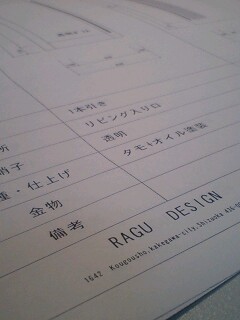 1本引き
所 リビング入り口
硝子 透明
種・仕上げ タモ+オイル塗装
金物
備考
RAGU DESIGN
1642 Kougousho,kakegawa-site,Shizuoka 436-0